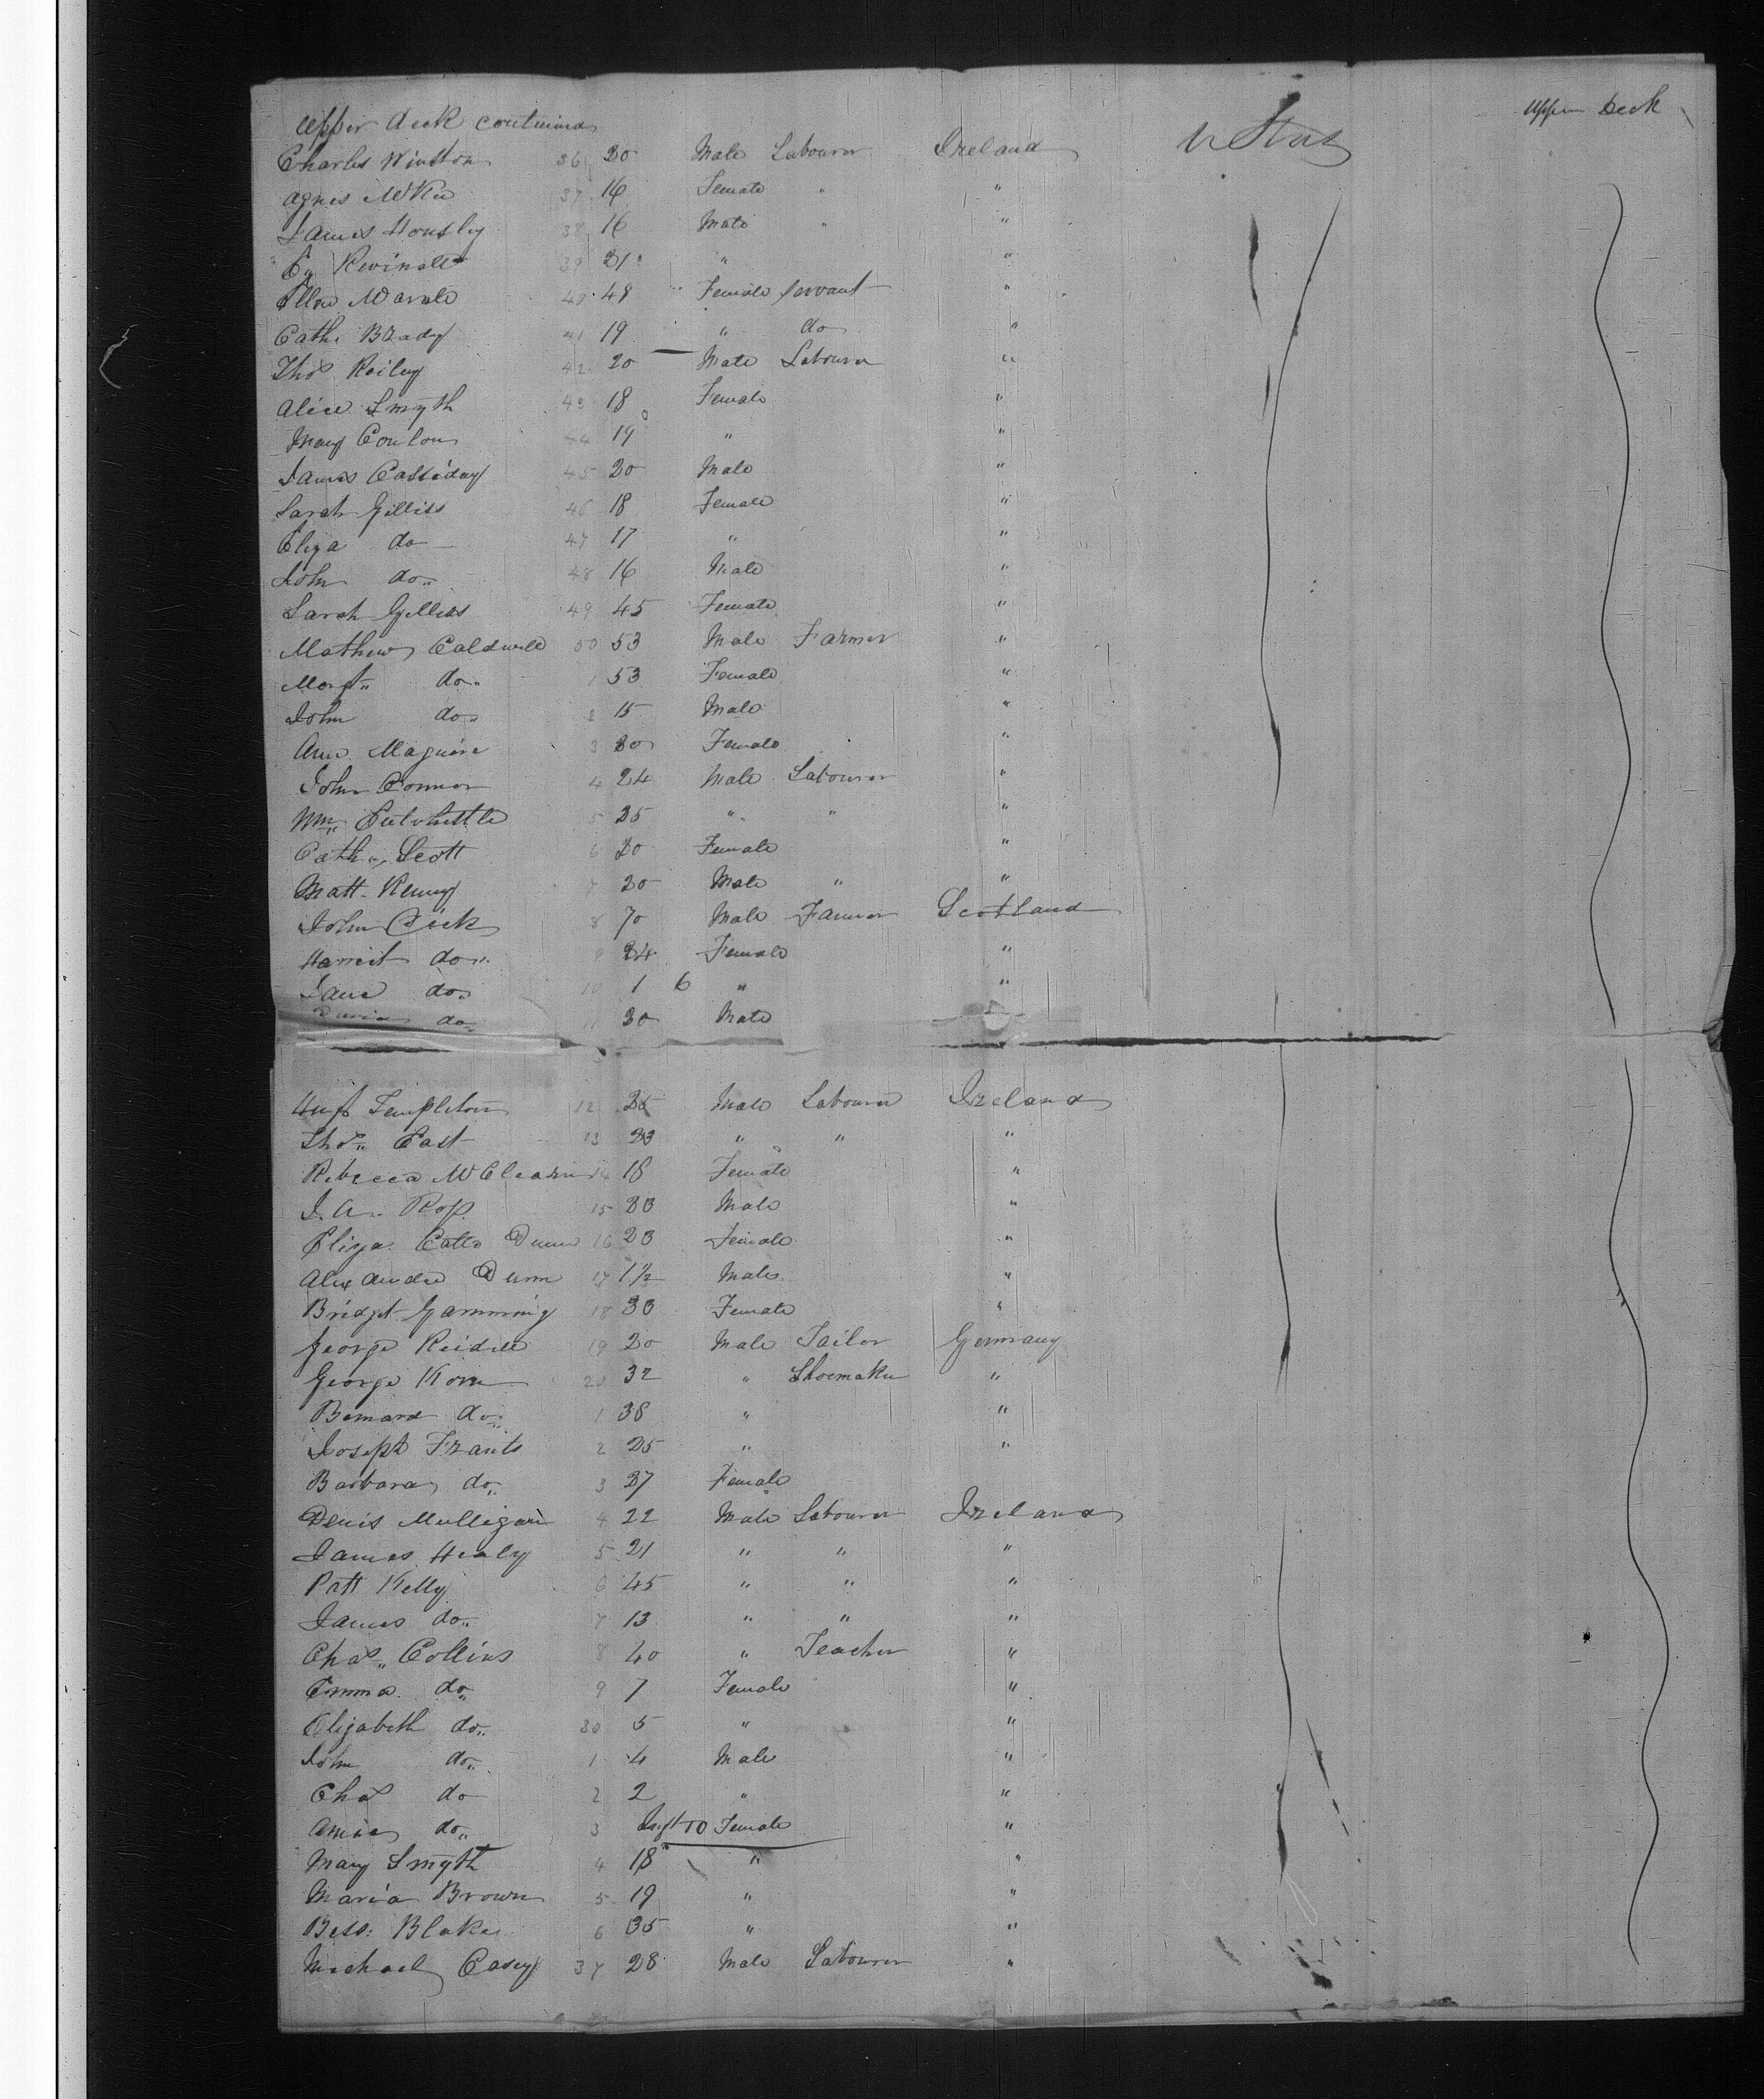 Upper deck continued Upper Deck
Charles Winston 36 20 Male Labourer Ireland U Stats
Agnes McKee 37 16 Female " "
James Housley 38 16 Male " "
39 21 " "
Ellen 40 48 Female Servant "
Cath. Brady 41 19 " do "
Thos Reiley 42 20 Male Labourer "
Alice Smyth 43 18 Female "
Mary Conlon 44 19 " "
James Cassiday 45 20 Male "
Sarah Gilliss 46 18 Female "
Eliza do 47 17 " "
John do 48 16 Male "
Sarah Gilliss 49 45 Female "
Mathew Caldwell 50 53 Male Farmer "
Margt do 1 53 Female "
John do 2 15 Male "
Ann Maguire 3 20 Female "
John Connor 4 24 Male Labourer "
Wm 5 25 " " "
Cath Scott 6 20 Female "
Matt Kenny 7 20 Male " "
John Dick 8 70 Male Farmer Scotland
Harriet do 9 24 Female "
Jane do 10 1 6 " "
do 11 30 Male
Templeton 12 Male Labourer Ireland
Thos East 13 23 " " "
Rebecca McClearn 14 18 Female "
J. A. Ross 15 23 Male "
Eliza Catts Dunn 16 23 Female "
Alexander Dunn 17 1½ Male "
Bridget Gamming 18 30 Female "
George Reidell 19 20 Male Tailor Germany
George Korn 20 32 " Shoemaker "
Bernard do 1 38 " "
Joseph Frants 2 25 " "
Barbara do 3 27 Female
Denis Mulligan 4 22 Male Labourer Ireland
James Healy 5 21 " " "
Patt Kelly 6 45 " " "
James do 7 13 " " "
Chas Collins 8 40 " Teacher "
Emma do 9 7 Female "
Elizabeth do 30 5 " "
John do 1 4 Male "
Chas do 2 2 " "
do 3 Inft 10 Female "
Mary Smyth 4 18 " "
Maria Brown 5 19 " "
Bess. Blake 6 35 " "
Michael Casey 37 28 Male Labourer "